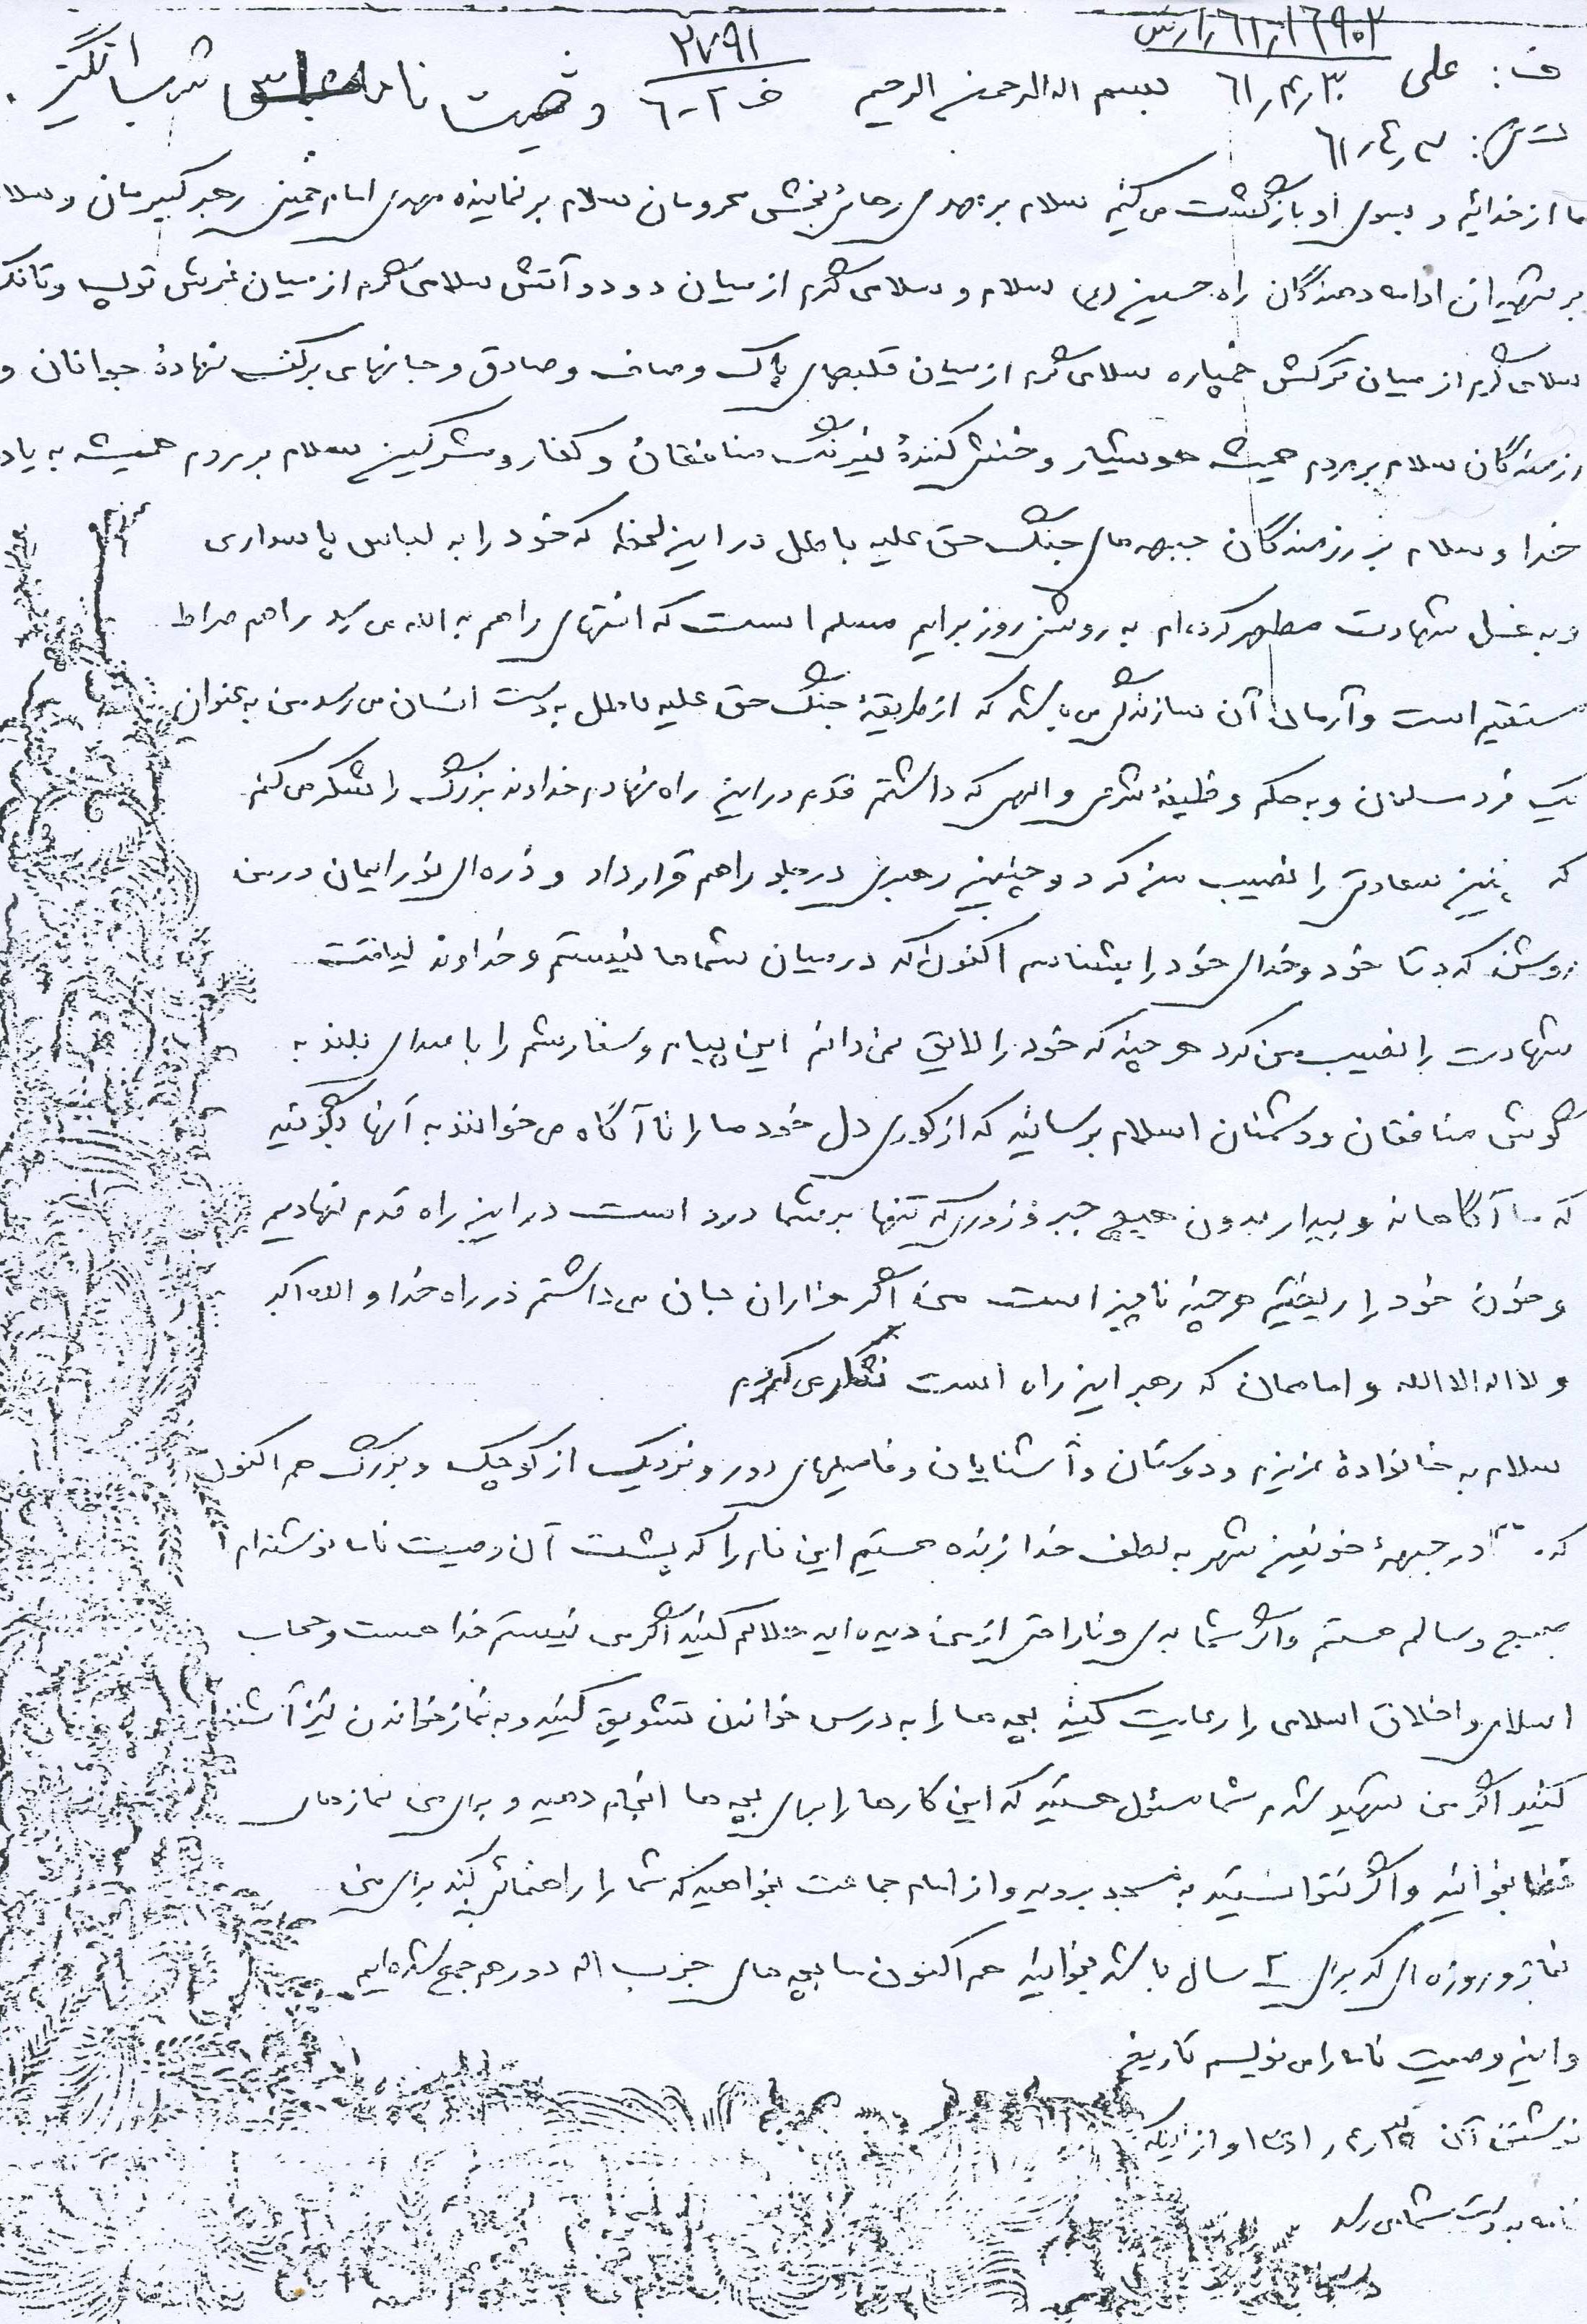 ۲۷۹۱
ف: علی ۶۱٫۴٫۳۰ بسم اله الرحمن الرحیم ف ۲-۶ وصیت نامه
ت ش: ۶۱٫۴٫
ما از خدائیم و بسوی او بازگشت می کنیم سلام بر مهدی رهائی بخش محرومان سلام بر نماینده مهدی امام خمینی رهبر کبیرمان و سلام
بر شهیدان ادامه دهندگان راه حسین (ع) سلام و سلامی گرم از میان دود و آتش سلامی گرم از میان غرش توپ و تانک
سلامی گرم از میان ترکش خمپاره سلامی گرم از میان قلبهای پاک و صاف و صادق و جانهای بر کف نهادهٔ جوانان و
رزمندگان سلام بر مردم همیشه هوشیار و خنثی کنندهٔ نیرنگ منافقان و کفار و مشرکین سلام بر مردم همیشه به یاد
خدا و سلام بر رزمندگان جبهه های جنگ حق علیه باطل در این لحظه که خود را به لباس پاسداری
و به غسل شهادت مطهر کرده ام به روشنی روز برایم مسلم است که انتهای راهم به الله می رسد راهم صراط
مستقیم است و آرمان آن سازندگی می باشد که از طریقهٔ جنگ حق علیه باطل به دست انسان می رسد من به عنوان
یک فرد مسلمان و به حکم وظیفهٔ شرعی و الهی که داشتم قدم در این راه نهادم خداوند بزرگ را شکر می کنم
که چنین سعادتی را نصیب من کرد و چنین رهبری در جلو راهم قرار داد و ذره ای نور ایمان در من
روشن کرد تا خود و خدای خود را بشناسم اکنون که در میان شماها نیستم و خداوند لیاقت
شهادت را نصیب من کرد هر چند که خود را لایق نمی دانم این پیام و سفارشم را با صدای بلند به
گوش منافقان و دشمنان اسلام برسانید که از کوری دل خود ما را ناآگاه می خوانند به آنها بگوئید
که ما آگاهانه و بیدار بدون هیچ جبر و زوری که تنها بر شما درد است در این راه قدم نهادیم
و خون خود را ریختیم هر چند ناچیز است من اگر هزاران جان می داشتم در راه خدا و الله اکبر
و لا اله الا الله و امامان که رهبر این راه است می کردم
سلام به خانوادهٔ عزیزم و دوستان و آشنایان و فامیلهای دور و نزدیک از کوچک و بزرگ هم اکنون
که در جبههٔ خونین شهر به لطف خدا زنده هستم این نامه را که پشت آن وصیت نامه نوشته ام
صحیح و سالم هستم و اگر شما بدی و ناراحتی از من دیده اید حلالم کنید اگر من نیستم خدا هست و حجاب
اسلامی و اخلاق اسلامی را رعایت کنید بچه ها را به درس خواندن تشویق کنید و به نماز خواندن نیز آشنا
کنید اگر من شهید شدم شما مسئول هستید که این کارها را برای بچه ها انجام دهید و برای من نمازهای
قضا بخوانید و اگر نتوانستید به مسجد بروید و از امام جماعت بخواهید که شما را راهنمائی کند برای من
نماز و روزه ای که برای سال باشد بخوانید هم اکنون ما بچه های حزب اله دور هم جمع شده ایم
و این وصیت نامه را می نویسم تاریخ
نوشتن آن و از اینکه
نامه به دست شما می رسد